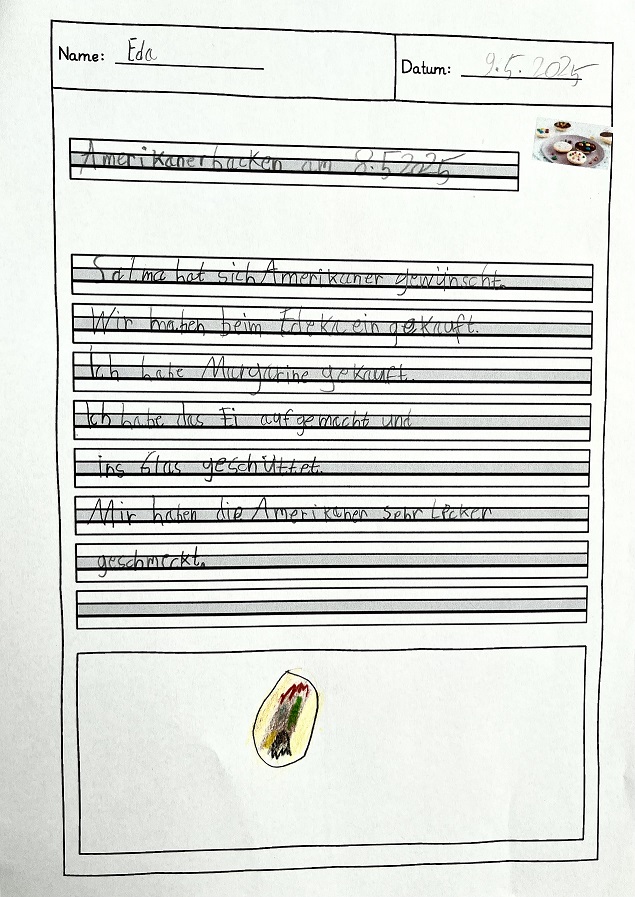 Name: Eda
Datum: 9.5.2025
Amerikanerbacken am 8.5 2025
Salma hat sich Amerikaner gewünscht.
Wir haben beim Edeka ein gekauft.
Ich habe Margarine gekauft.
Ich habe das Ei aufgemacht und
ins Glas geschüttet.
Mir haben die Amerikaner sehr lecker
geschmeckt.